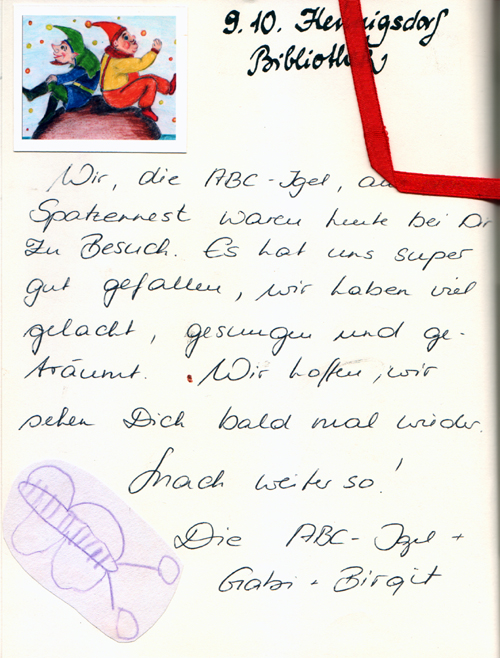 9.10. Hennigsdorf
Bibliothek
Wir, die ABC-Igel,
Spatzennest waren heute bei Dir
zu Besuch. Es hat uns super
gut gefallen, wir haben viel
gelacht, gesungen und ge-
träumt. Wir hoffen, wir
sehen Dich bald mal wieder.
Mach weiter so!
Die ABC-Igel +
Gabi + Birgit